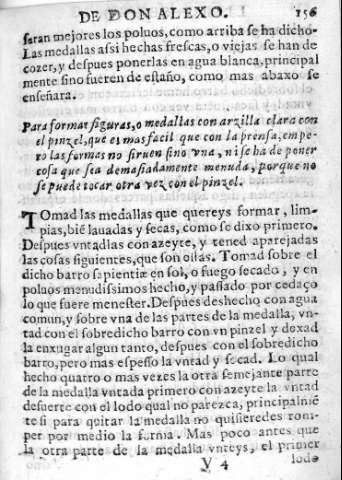 DE DON ALEXO. 156
saran mejores los poluos, como arriba se ha dicho.
Las medallas assi hechas frescas, o viejas se han de
cozer, y despues ponerlas en agua blanca, principal
mente sino fueren de estaño, como mas abaxo se
enseñara.
Para formar figuras, o medallas con arzilla clara con
el pinzel, que es mas facil que con la prensa, empe-
ro las formas no siruen sino vna, ni se ha de poner
cosa que sea demasiadamente menuda, porque no
se puede tocar otra vez con el pinzel.
TOmad las medallas que quereys formar, lim-
pias, biē lauadas y secas, como se dixo primero.
Despues vntadlas con azeyte, y tened aparejadas
las cosas siguientes, que son estas. Tomad sobre el
dicho barro sapientiæ en sol, o fuego secado, y en
poluos menudissimos hecho, y passado por cedaço
lo que fuere menester. Despues deshecho con agua
comun, y sobre vna de las partes de la medalla, vn-
tad con el sobredicho barro con vn pinzel y dexad
la enxugar algun tanto, despues con el sobredicho
barro, pero mas espesso la vntad y secad. Lo qual
hecho quatro o mas vezes la otra semejante parte
de la medalla vntada primero con azeyte la vntad
desuerte con el lodo qual no parezca, principalmē
te si para quitar la medalla no quisieredes rom-
per por medio la forma. Mas poco antes que
la otra parte de la medalla vnteys, el primer
V 4 lodo